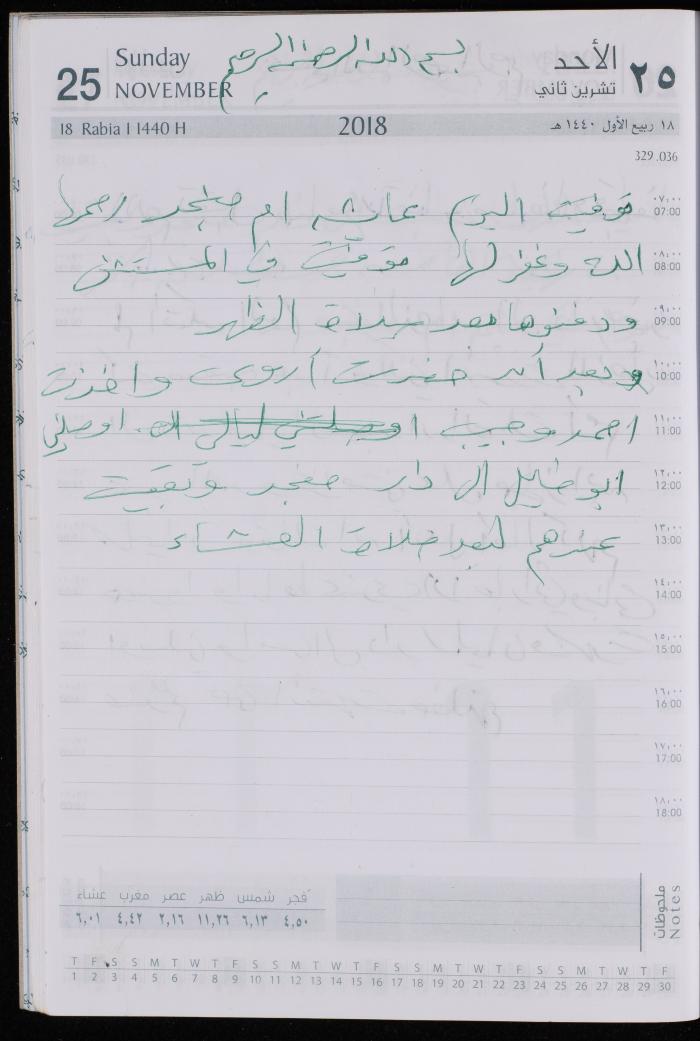 25
Sunday
NOVEMBER
بسم الله الرحمن الرحيم
الأحد
تشرين ثاني
٢٥
18 Rabia I 1440 H
2018
١٨ ربيع الأول ١٤٤٠ هـ
329.036
توفيت اليوم عائشه ام منجد رحمها
٠٧:٠٠
07:00
الله وغفر لها توفيت في المستشفى
٠٨:٠٠
08:00
ودفنوها بعد صلاة الظهر
٠٩:٠٠
09:00
وبعد أن حضرت أروى واخذت
١٠:٠٠
10:00
احمد وجيب اوصلتني ليالي الى اوصلني
١١:٠٠
11:00
ابو طايل الى دار منجد وبقيت
١٢:٠٠
12:00
عندهم لبعد صلاة العشاء
١٣:٠٠
13:00
١٤:٠٠
14:00
١٥:٠٠
15:00
١٦:٠٠
16:00
١٧:٠٠
17:00
١٨:٠٠
18:00
فجر شمس ظهر عصر مغرب عشاء
٤,٥٠ ٦,١٣ ١١,٢٦ ٢,١٦ ٤,٤٢ ٦,٠١
ملحوظات
Notes
T F S S M T W T F S S M T W T F S S M T W T F S S M T W T F
1 2 3 4 5 6 7 8 9 10 11 12 13 14 15 16 17 18 19 20 21 22 23 24 25 26 27 28 29 30